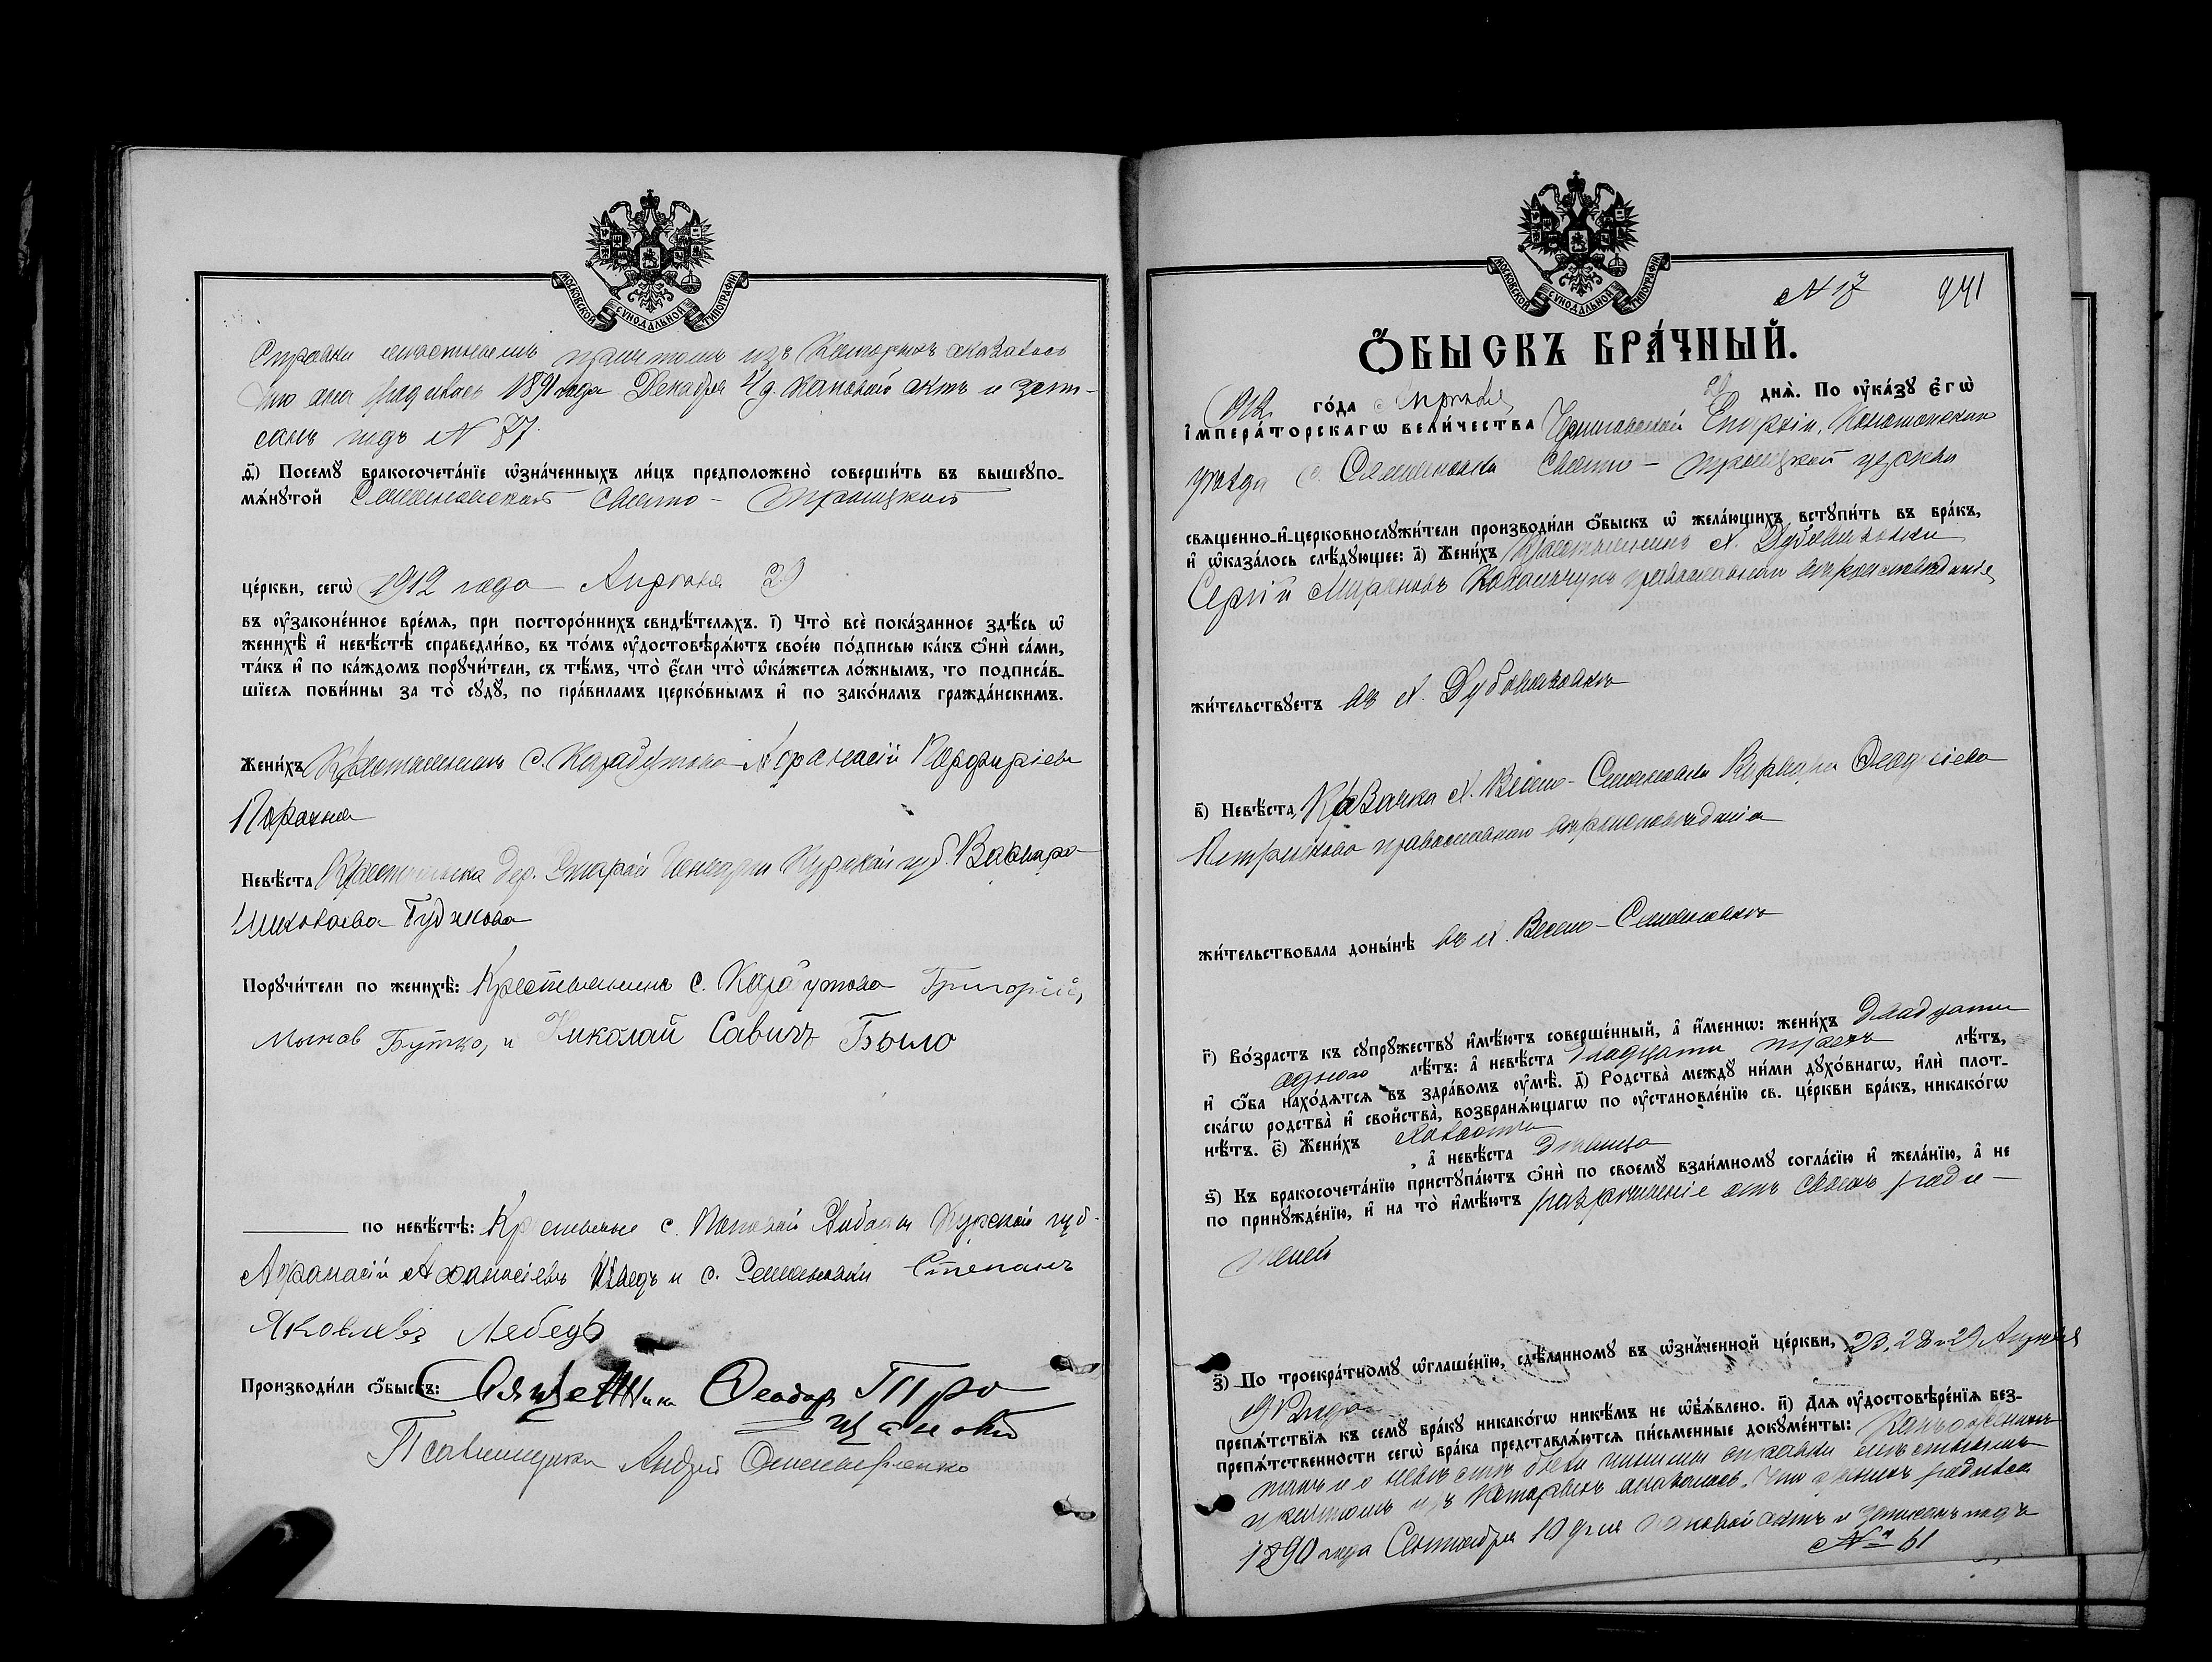 МОСКОВСКОЙ СѴНОДАЛЬНОЙ ТИПОГРАФІИ
Справки мѣстнымъ причтомъ изъ которыхъ оказалось
что она родилась 1891 года Декабря 4 д. каковой актъ и запи-
санъ подъ № 87.
ѳ҃) Посемꙋ бракосочета́нїе ѡ҆зна́ченныхъ ли́цъ предположено̀ соверши́ть въ вышеꙋпо-
мѧ́нꙋтой Семеновской Свято-Троицкой
це́ркви, сегѡ̀ 1912 года Апрѣля 29
въ ᲂу҆законе́нное вре́мѧ, при посторо́ннихъ свидѣ́телѧхъ. і҃) Что̀ всѐ пока́занное здѣ́сь ѡ҆
женихѣ̀ и҆ невѣ́стѣ справедли́во, въ то́мъ ᲂу҆достовѣрѧ́ютъ свое́ю по́дписью ка́къ ѻ҆нѝ са́ми,
та́къ и҆ по ка́ждомъ порꙋчи́тели, съ тѣ́мъ, что̀ є҆́сли что̀ ѡ҆ка́жется ло́жнымъ, то подписа́в-
шїесѧ пови́нны за то̀ сꙋдꙋ̀, по пра́виламъ церко́внымъ и҆ по зако́намъ гражда́нскимъ.
Жени́хъ Крестьянинъ с. Карабутова Афанасій Порфиріевъ
Невѣ́ста Крестьянка дер. Старой Курской губ. Варвара
Николаева Гуджкова
Порꙋчи́тели по женихѣ̀: Крестьянинъ с. Карабутова Григорій,
Бутко, и Николай Савичъ Было
по невѣ́стѣ: Крестьяне с. Курской губ.
Афанасій Афанасіевъ и с. Семеновки Степанъ
Яковлевъ Лебедь
Производи́ли ѻ҆́быскъ: Священникъ Ѳеодоръ Тро
цановъ
Псаломщикъ Андрей
МОСКОВСКОЙ СѴНОДАЛЬНОЙ ТИПОГРАФІИ
№ 17 941
Ѻ҆́БЫСКЪ БРА́ЧНЫЙ.
1912 го́да Апрѣля 29 днѧ̀. По ᲂу҆ка́зꙋ Є҆гѡ̀
І҆мпера́торскагѡ вели́чества Черниговской Епархіи, Конотопскаго
уѣзда с. Семеновки Свято-Троицкой церкви
сващенно-и҆-церковнослꙋжи́тели производи́ли ѻ҆́быскъ ѡ҆ жела́ющихъ встꙋпи́ть въ бра́къ,
и҆ ѡ҆каза́лось слѣ́дꙋющее: а҃) Жени́хъ Крестьянинъ х. Дубовязовки
Сергій Мироновъ Ковальчукъ православнаго вѣроисповѣданія
жи́тельствꙋетъ въ х.
в҃) Невѣ́ста, Казачка х. Весело-Степановки Варвара Ѳеодосіева
православнаго вѣроисповѣданія
жи́тельствовала доны́нѣ въ х. Весело-Степановкѣ
г҃) Во́зрастъ къ сꙋпрꙋ́жествꙋ и҆мѣ́ютъ соверше́нный, а҆ и҆́меннѡ: жени́хъ двадцати
одного лѣ́тъ: а҆ невѣ́ста двадцати трехъ лѣ́тъ,
и҆ ѻ҆́ба нахо́дятсѧ въ здра́вомъ ᲂу҆мѣ̀. д҃) Родства̀ междꙋ ни́ми дꙋхо́внагѡ, и҆лѝ плот-
ска́гѡ родства̀ и҆ сво́йства, возбранѧ́ющагѡ по ᲂу҆становле́нїю св. це́ркви бра́къ, никако́гѡ
нѣ́тъ. є҃) Жени́хъ холостъ, а҆ невѣ́ста дѣвица
ѕ҃) Къ бракосочета́нїю пристꙋпа́ютъ ѻ҆нѝ по своемꙋ̀ взаи́мномꙋ согла́сїю и҆ жела́нїю, а҆ не
по принꙋжде́нїю, и҆ на то̀ и҆мѣ́ютъ разрѣшеніе отъ своихъ роди-
телей
з҃) По троекра́тномꙋ ѡ҆глаше́нїю, сдѣ́ланномꙋ въ ѡ҆зна́ченной це́ркви, 23, 28 и 29 Апрѣля
1912 года
препѧ́тствїѧ къ семꙋ̀ бра́кꙋ никако́гѡ никѣ́мъ не ѡ҆б̾ѧ́влено. и҃) Длѧ ᲂу҆достовѣре́нїѧ без-
препѧ́тственности сегѡ̀ бра́ка представлѧ́ются пи́сьменные докꙋме́нты: Какъ о женихѣ
такъ и о невѣстѣ были чинимы справки мѣстнымъ
причтомъ изъ которыхъ оказалось, что женихъ родился
1890 года Сентября 10 дня каковой актъ и записанъ подъ
№ 61